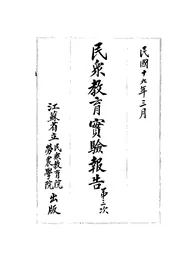 民國十九年三月
民衆教育實驗報告第二次
江蘇省立民衆教育院
勞農學院
出版